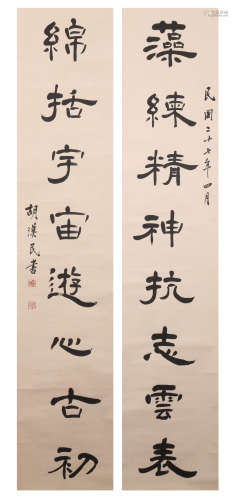 藻練精神抗志雲表
民國二十七年四月
綿括宇宙遊心古初
胡漢民書